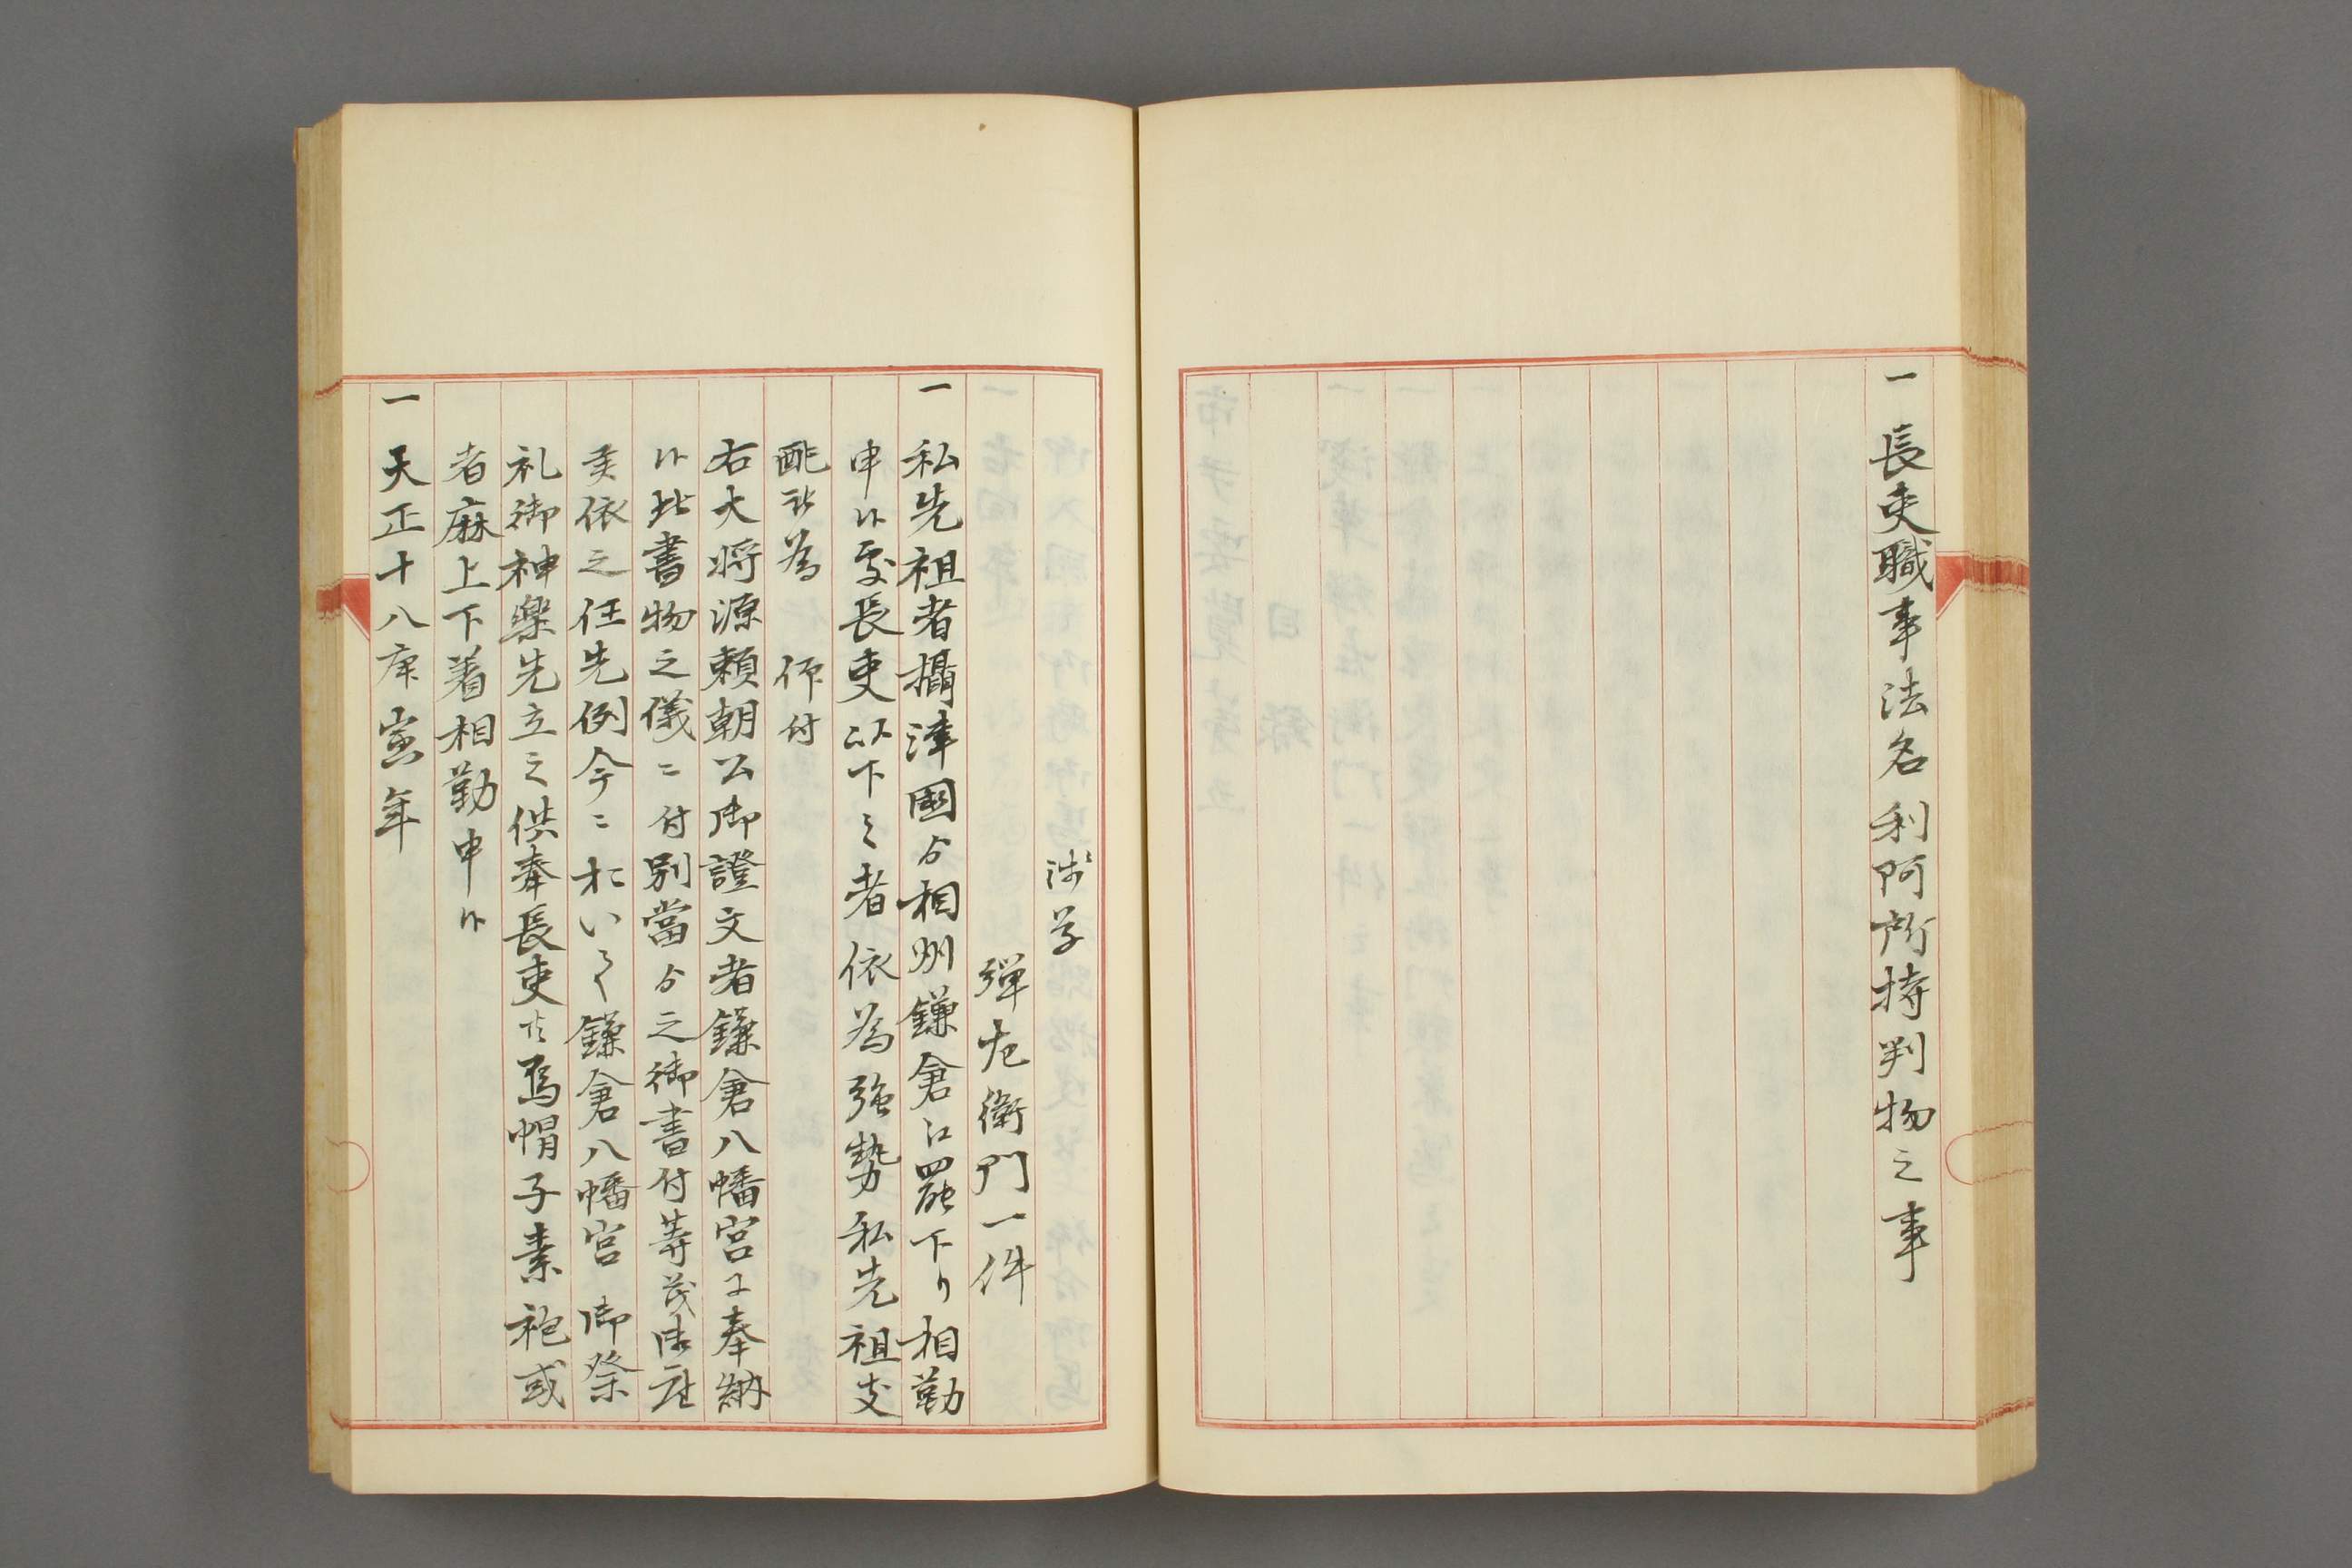 一 長吏職事法名利阿所持判物之事
浅草
弾左衛門一件
一 私先祖者攝津國ゟ相州鎌倉江罷下り相勤
申候處長吏以下之者依為強勢私先祖支
配被為 仰付
右大将源頼朝公御證文者鎌倉八幡宮ニ奉納
候此書物之儀ニ付別當ゟ之御書付等茂御座
候依之任先例今ニおいて鎌倉八幡宮 御祭
礼御神楽先立之供奉長吏共烏帽子素袍或
者麻上下着相勤申候
一 天正十八庚寅年